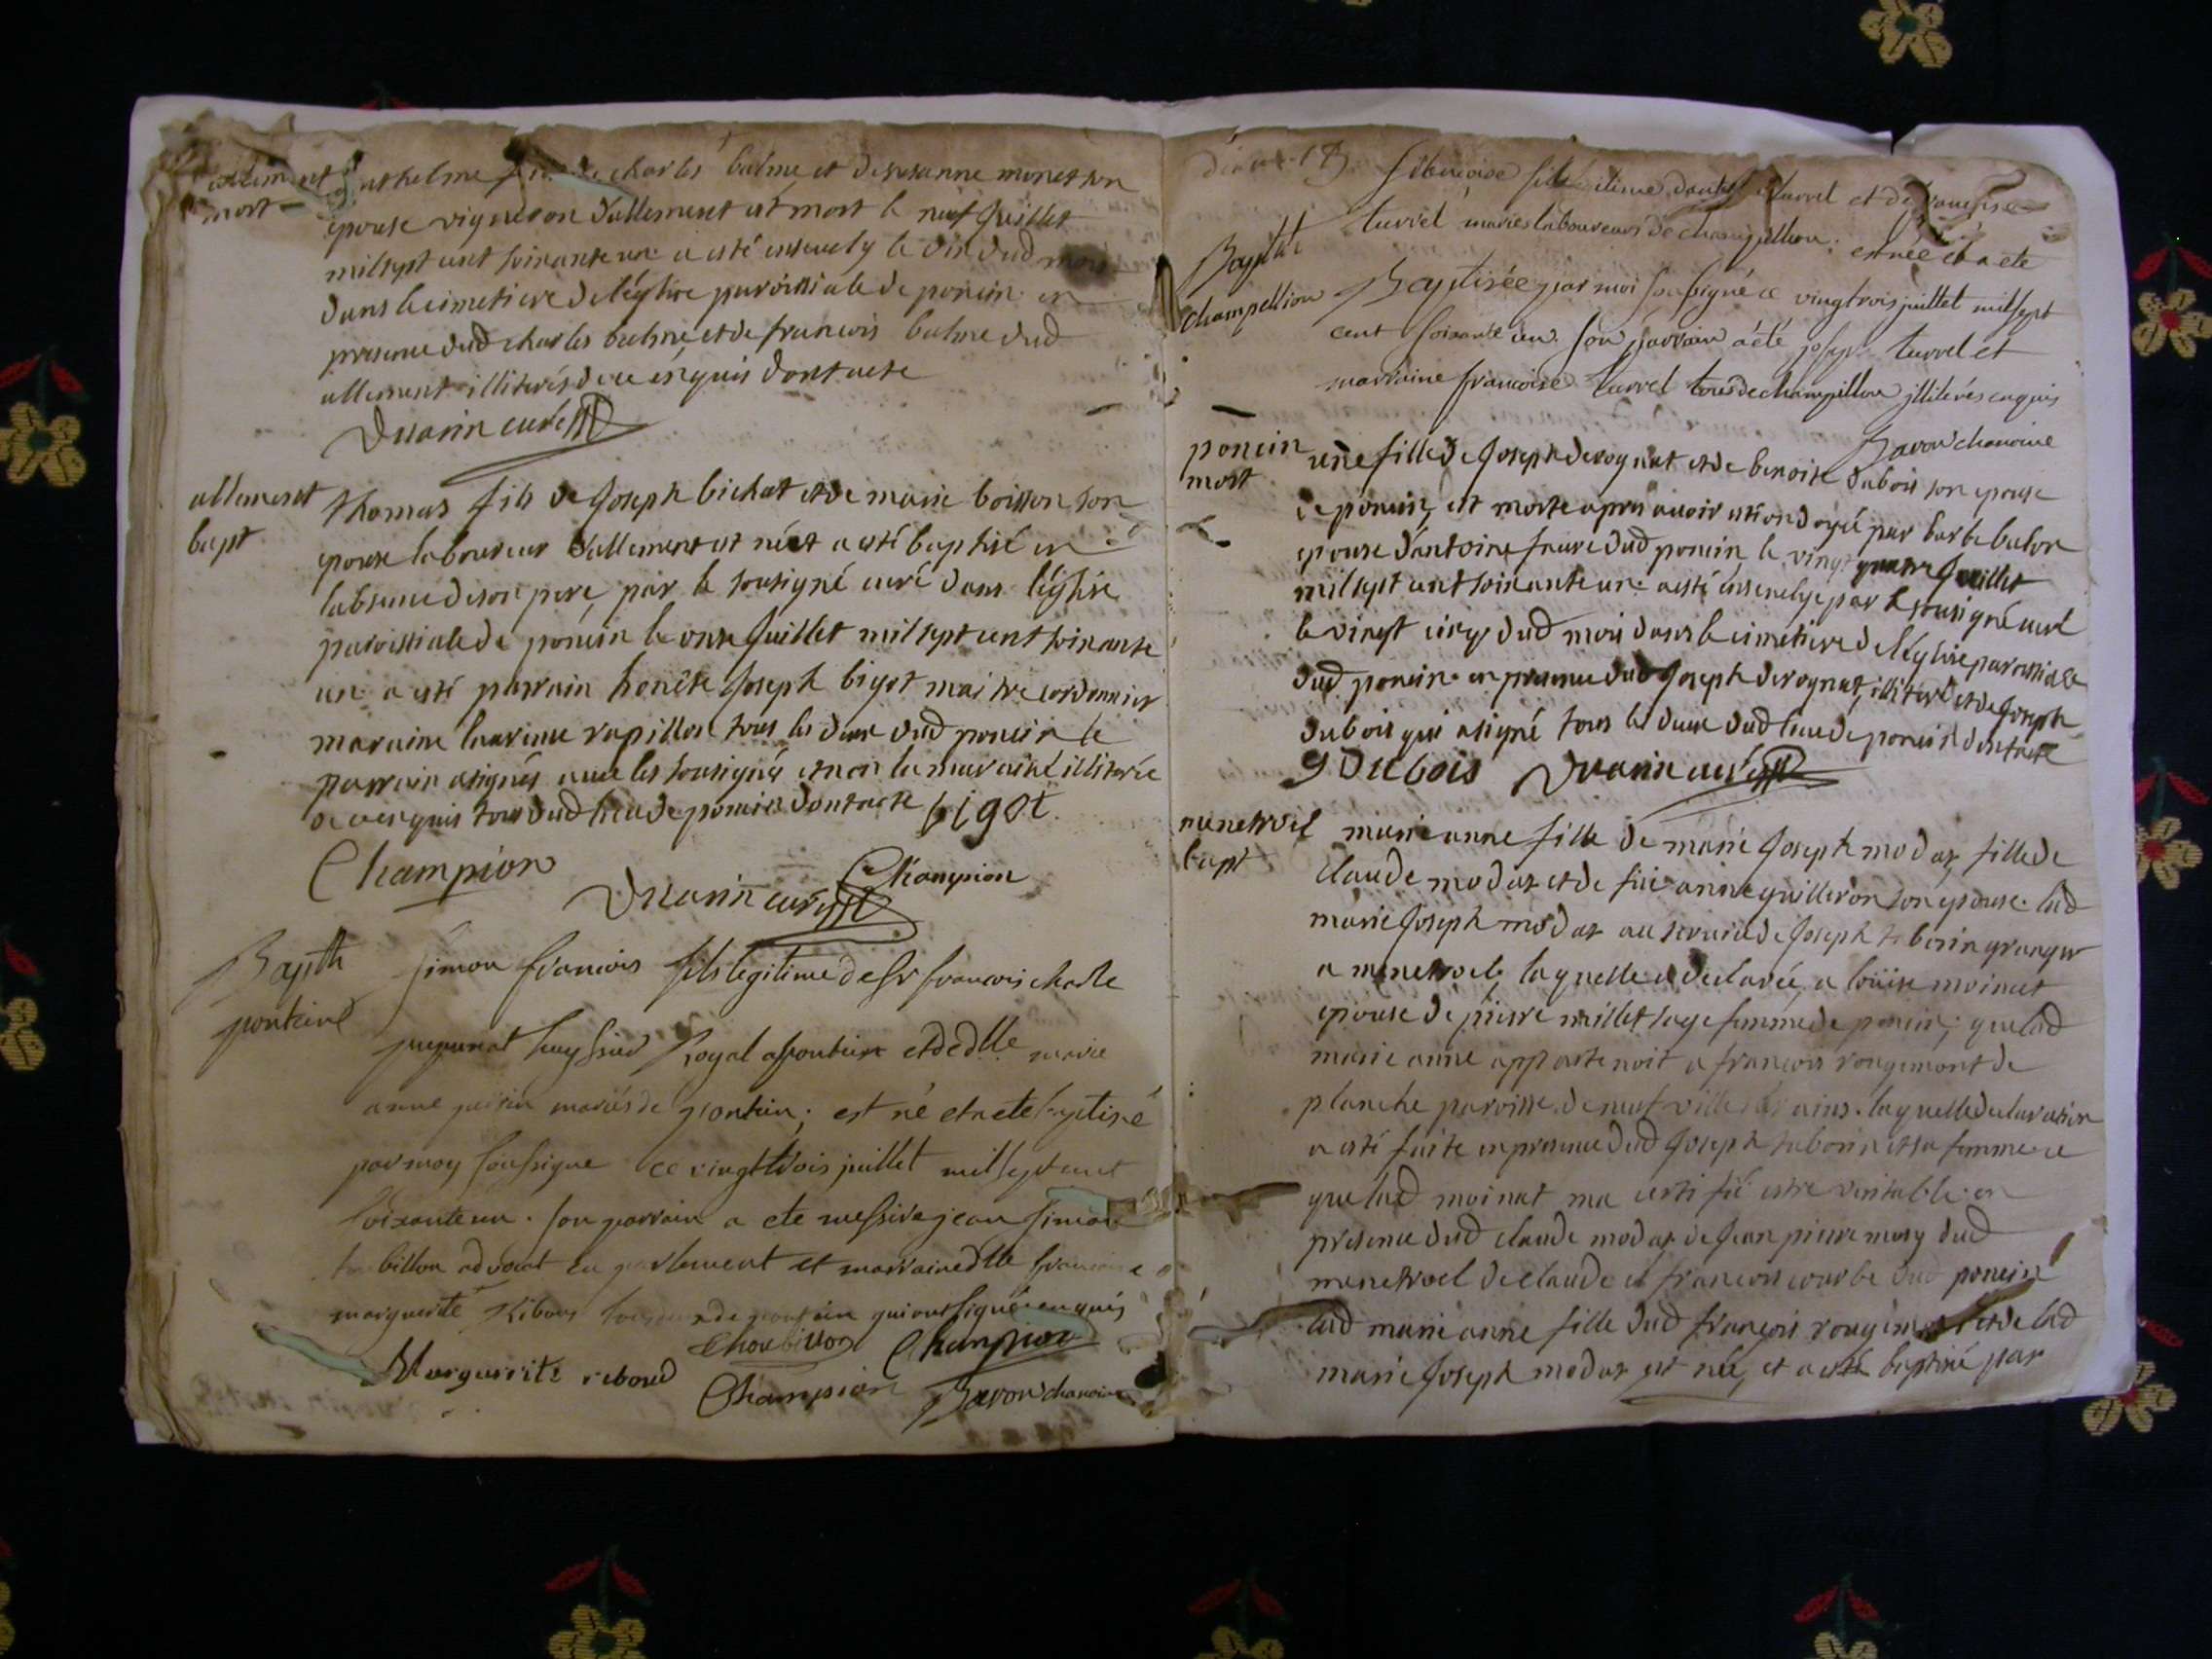 allement
mort
anthelme fils de charles balme et de susanne monet son
epouse vigneron d'allement est mort le neuf Juillet
mil sept cent soixante un a esté ensevely le dix dud mois
dans le cimetiere de léglise paroissiale de poncin en
presence dud charles balme et de francois balme dud
allement illiterés de ce enquis dont acte
Duarin curé
allement
bapt
thomas fils de Joseph bichat et de marie boisson son
epouse laboureur d'allement est né et a esté baptisé en
labsence de son pere, par le sousigné curé dans léglise
paroissiale de poncin le onze Juillet mil sept cent soixante
un a esté parrain honête Joseph bigot maitre cordonnier
maraine laurence rapillon tous les deux dud poncin le
parrain a signés avec les sousignés et non la maraine illiterée
de ce enquis tous dud lieu de poncin dont acte bigot
Champion
Champion
Duarin curé
Bapth
pontain
simon francois fils legitime de sr francois charle
huyssier Royal a pontain et de dlle marie
anne mariés de pontain; est né et a ete baptisé
par moy soussigne ce vingt trois juillet mil sept cent
soixante un. son parrain a ete messire jean simon
advocat en parlement et marraine dlle francoise
marguerite Ribour de pontain qui ont signé enquis
Choubillon Champion
Marguerite reboud
Champion Baron chanoine
turrel et de francoise
turrel mariés laboureurs de champillion: est née et a ete
Baptt
champellion
Baptisée par moi soussigné ce vingtrois juillet mil sept
cent soixante un. son parrain a été joseph turrel et
marraine francoise turrel tous de champillon illiterés enquis
Baron chanoine
poncin
mort
une fille de Joseph derognat et de benoite dubois son epouse
de poncin, est morte apres avoir esté ondoyée par barbe balon
epouse d'antoine faure dud poncin le vingt quatre Juillet
mil sept cent soixante un: a esté ensevelye par le sousigné curé
le vingt cinq dud mois dans le cimetiere de léglise paroissiale
dud poncin en presence dud Joseph derognat, illiteré et de Joseph
dubois qui a signé tous les deux dud lieu de poncin dont acte
J Dubois Duarin curé
menetruel
bapt
marie anne fille de marie Joseph modas fille de
claude modas et de fue anne guilleron son epouse. lad
marie Joseph modas au service de Joseph taborin granger
a menetruel, laquelle a declarée, a loüise moinat
epouse de pierre millet sage femme de poncin; que lad
marie anne appartenoit a francois rougemont de
planche paroisse de neufville laquelle declaration
a esté faite en presence dud Joseph taborin et sa femme ce
que lad moinat ma certifié estre veritable. en
presence dud claude modas de Jean pierre mory dud
menetruel de claude et francois courbe dud poncin
lad marie anne fille dud françois rougemont et de lad
marie Joseph modas est née, et a esté baptisé par